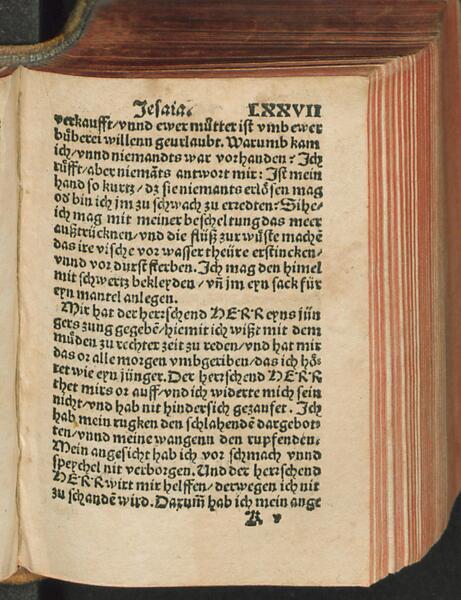 Jesaia. LXXVII
verkaufft/vnnd ewer můtter ist vmb ewer
bůberei willenn geurlaubt. Warumb kam
ich/vnnd niemandts war vorhanden? Ich
růfft/aber niemāts antwort mir: Jst mein
hand so kurtz/dz sie niemants erlösen mag
od̄ bin ich jm zu schwach zu erredten? Sihe/
ich mag mit meiner bescheltung das meer
außtrücknen/vnd die flüß zur wůste machē
das ire vische vor wasser theüre erstincken/
vnnd vor durst sterben. Jch mag den himel
mit schwertz bekleyden/vn̄ jm eyn sack für
eyn mantel anlegen.
Mir hat der herrschend HERR eyns jün
gers zung gegebē/hiemit ich wißt mit dem
můden zu rechter zeit zu reden/vnd hat mir
das or alle morgen vmbgeriben/das ich hö⸗
ret wie eyn jünger. Der herrschend HERR
thet mirs or auff/vnd ich widerte mich sein
nicht/vnd hab nit hindersich gezaufet. Jch
hab mein rugken den schlahendē dargebot⸗
ten/vnnd meine wangenn den rupfenden.
Mein angesicht hab ich vor schmach vnnd
speychel nit verborgen. Und der herrschend
HERR wirt mir helffen/derwegen ich nit
zu schandē wird. Darum̄ hab ich mein ange
K v